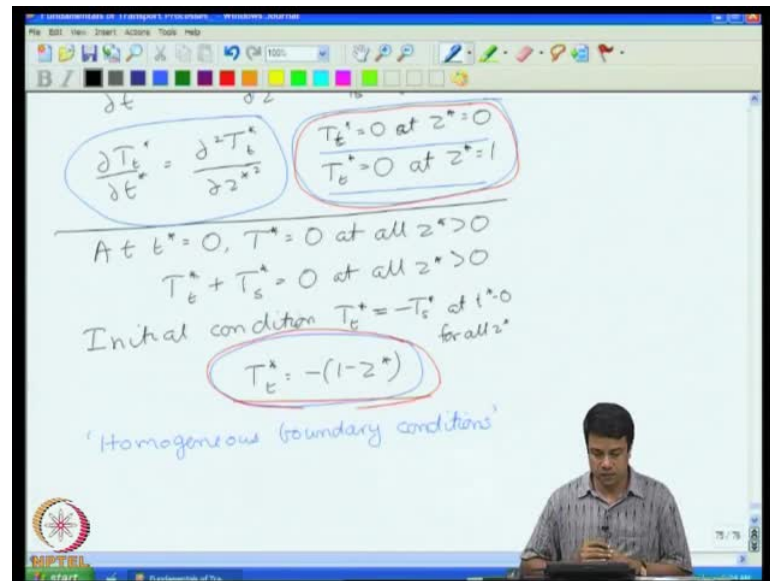 Fundamentals of Transport Processes - Windows Journal
File Edit View Insert Actions Tools Help
100%
B I
∂t ∂z
∂T_t*/∂t* = ∂²T_t*/∂z*²
T_t* = 0 at z* = 0
T_t* = 0 at z* = 1
At t* = 0, T* = 0 at all z* > 0
T_t* + T_s* = 0 at all z* > 0
Initial condition T_t* = -T_s* at t* = 0
for all z*
T_t* = -(1-z*)
'Homogeneous boundary conditions'
75 / 76
NPTEL
start
Fundamentals of Tra...